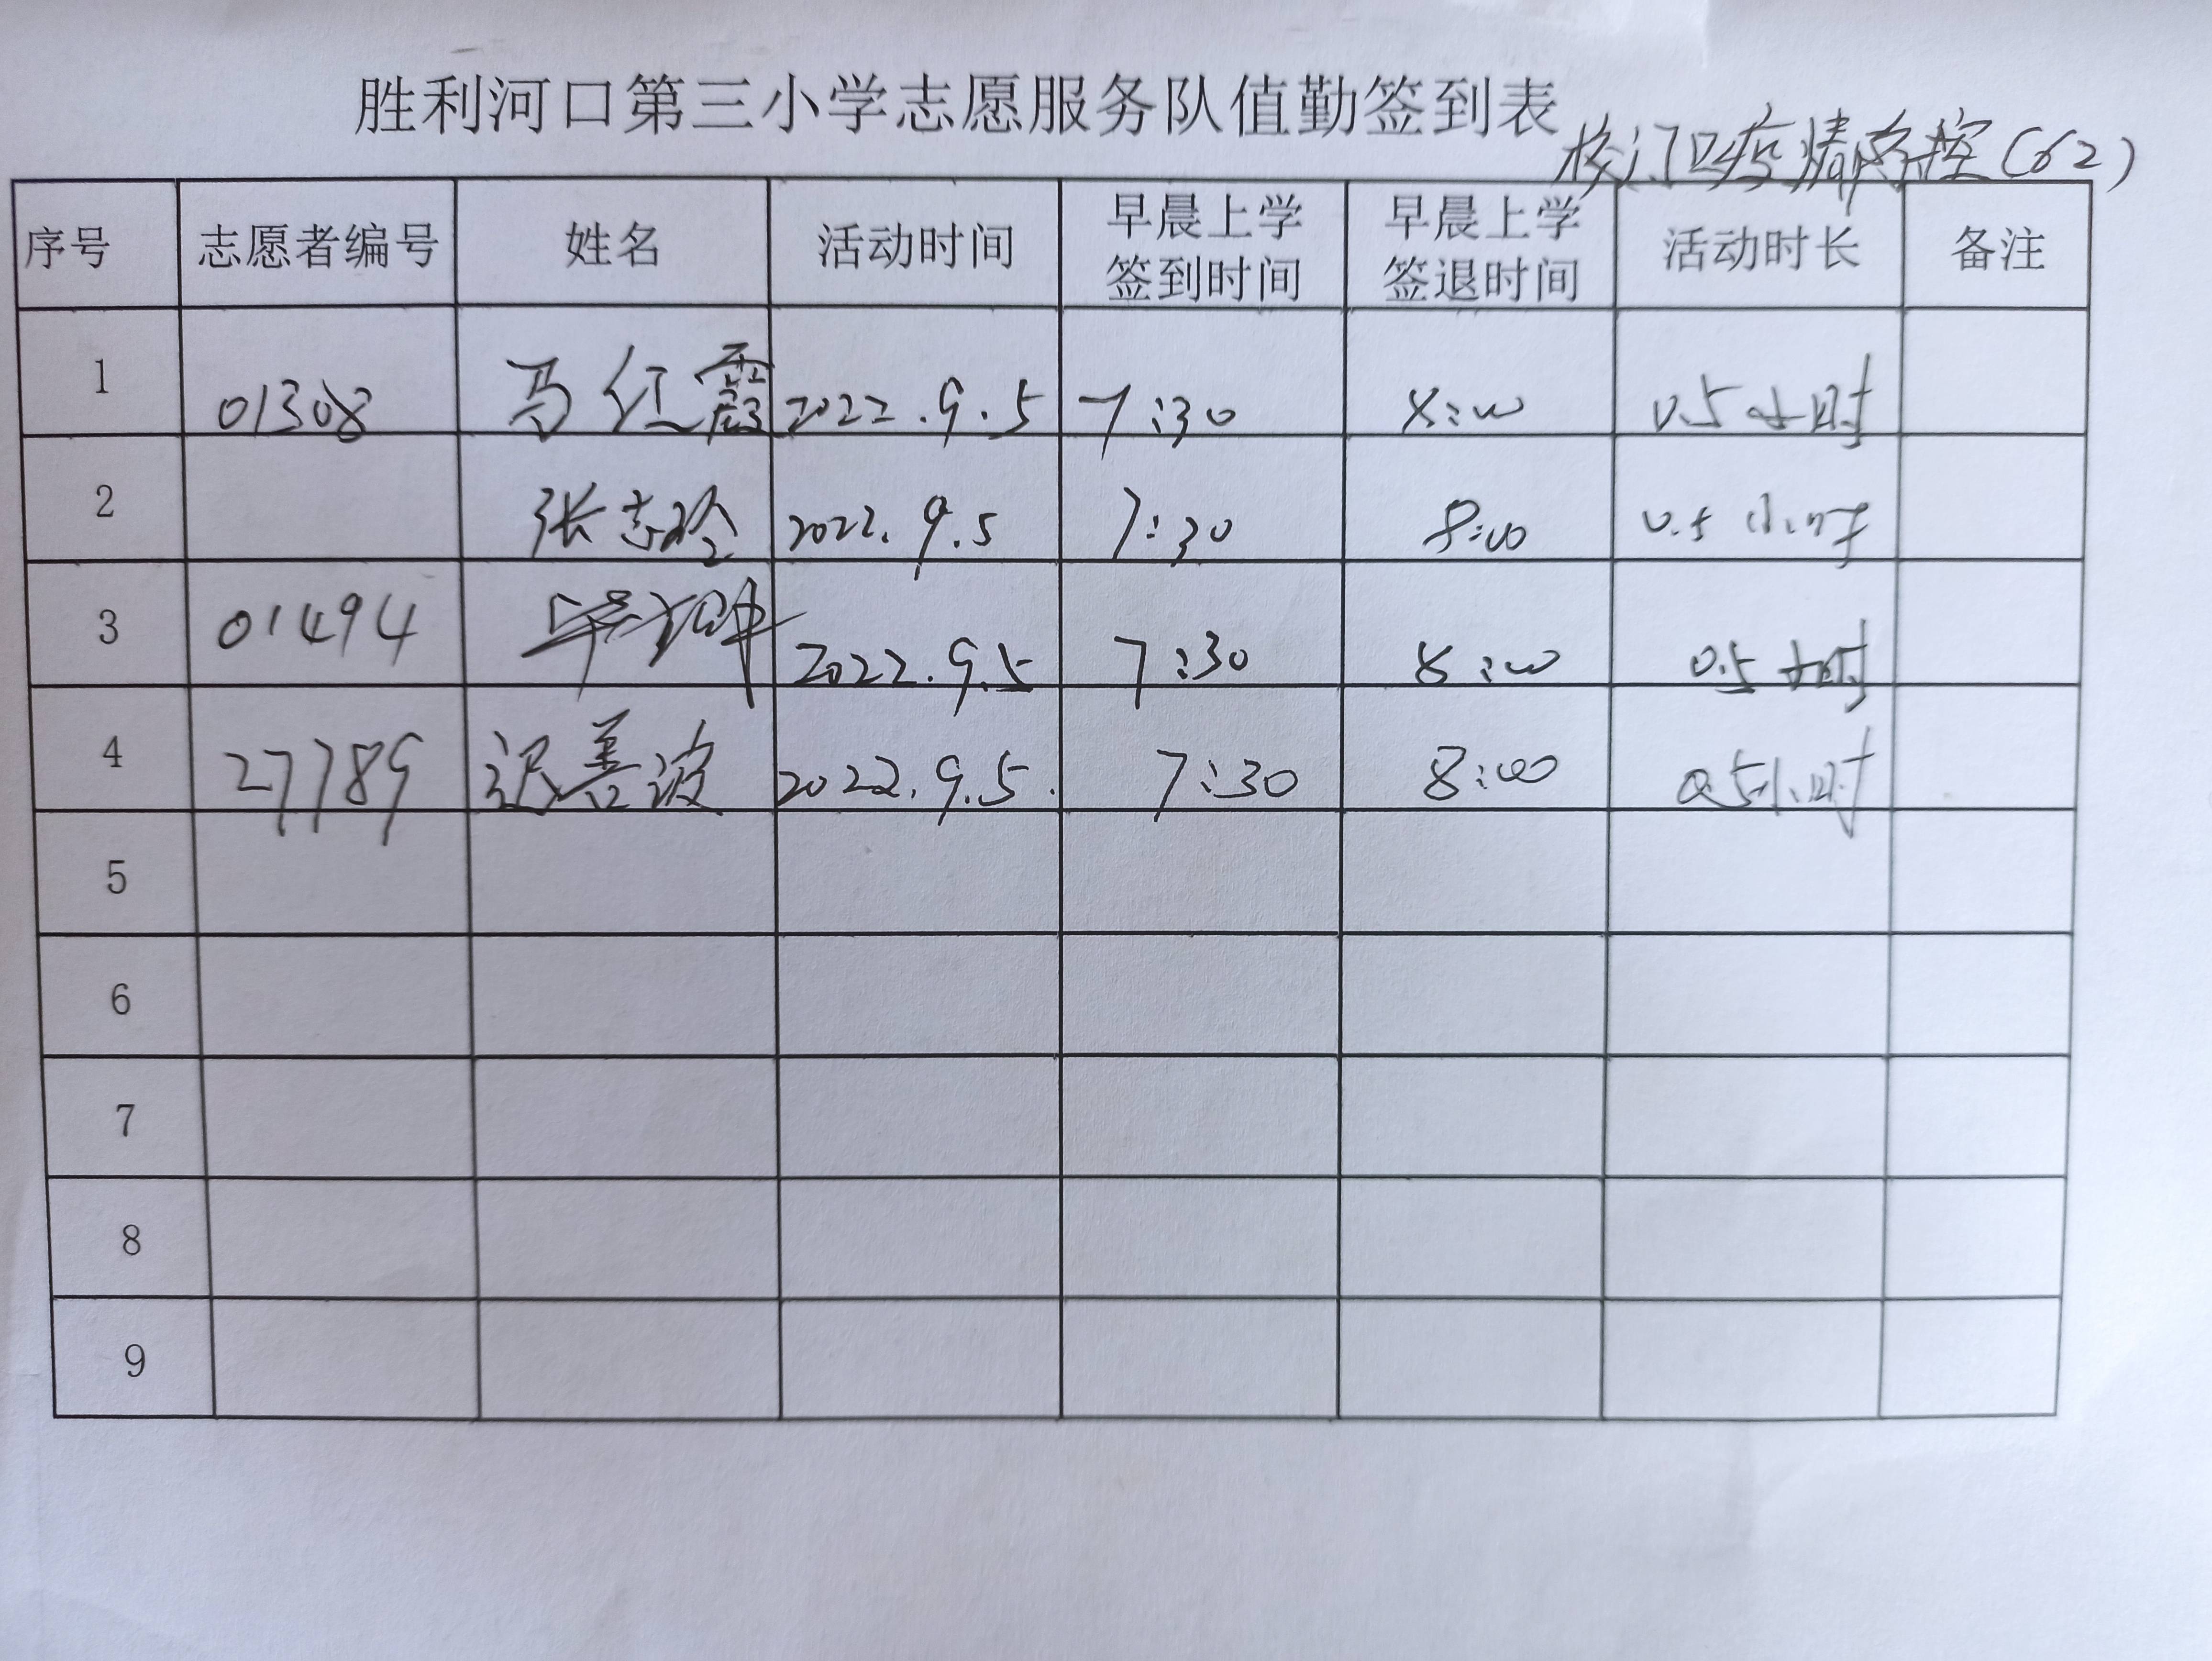 胜利河口第三小学志愿服务队值勤签到表
校门口疫情防控（62）
序号 志愿者编号 姓名 活动时间 早晨上学签到时间 早晨上学签退时间 活动时长 备注
1 01308 马红霞 2022.9.5 7:30 8:00 0.5小时
2 张志玲 2022.9.5 7:30 8:00 0.5小时
3 01494 2022.9.5 7:30 8:00 0.5小时
4 27789 迟善波 2022.9.5. 7:30 8:00 0.5小时
5
6
7
8
9